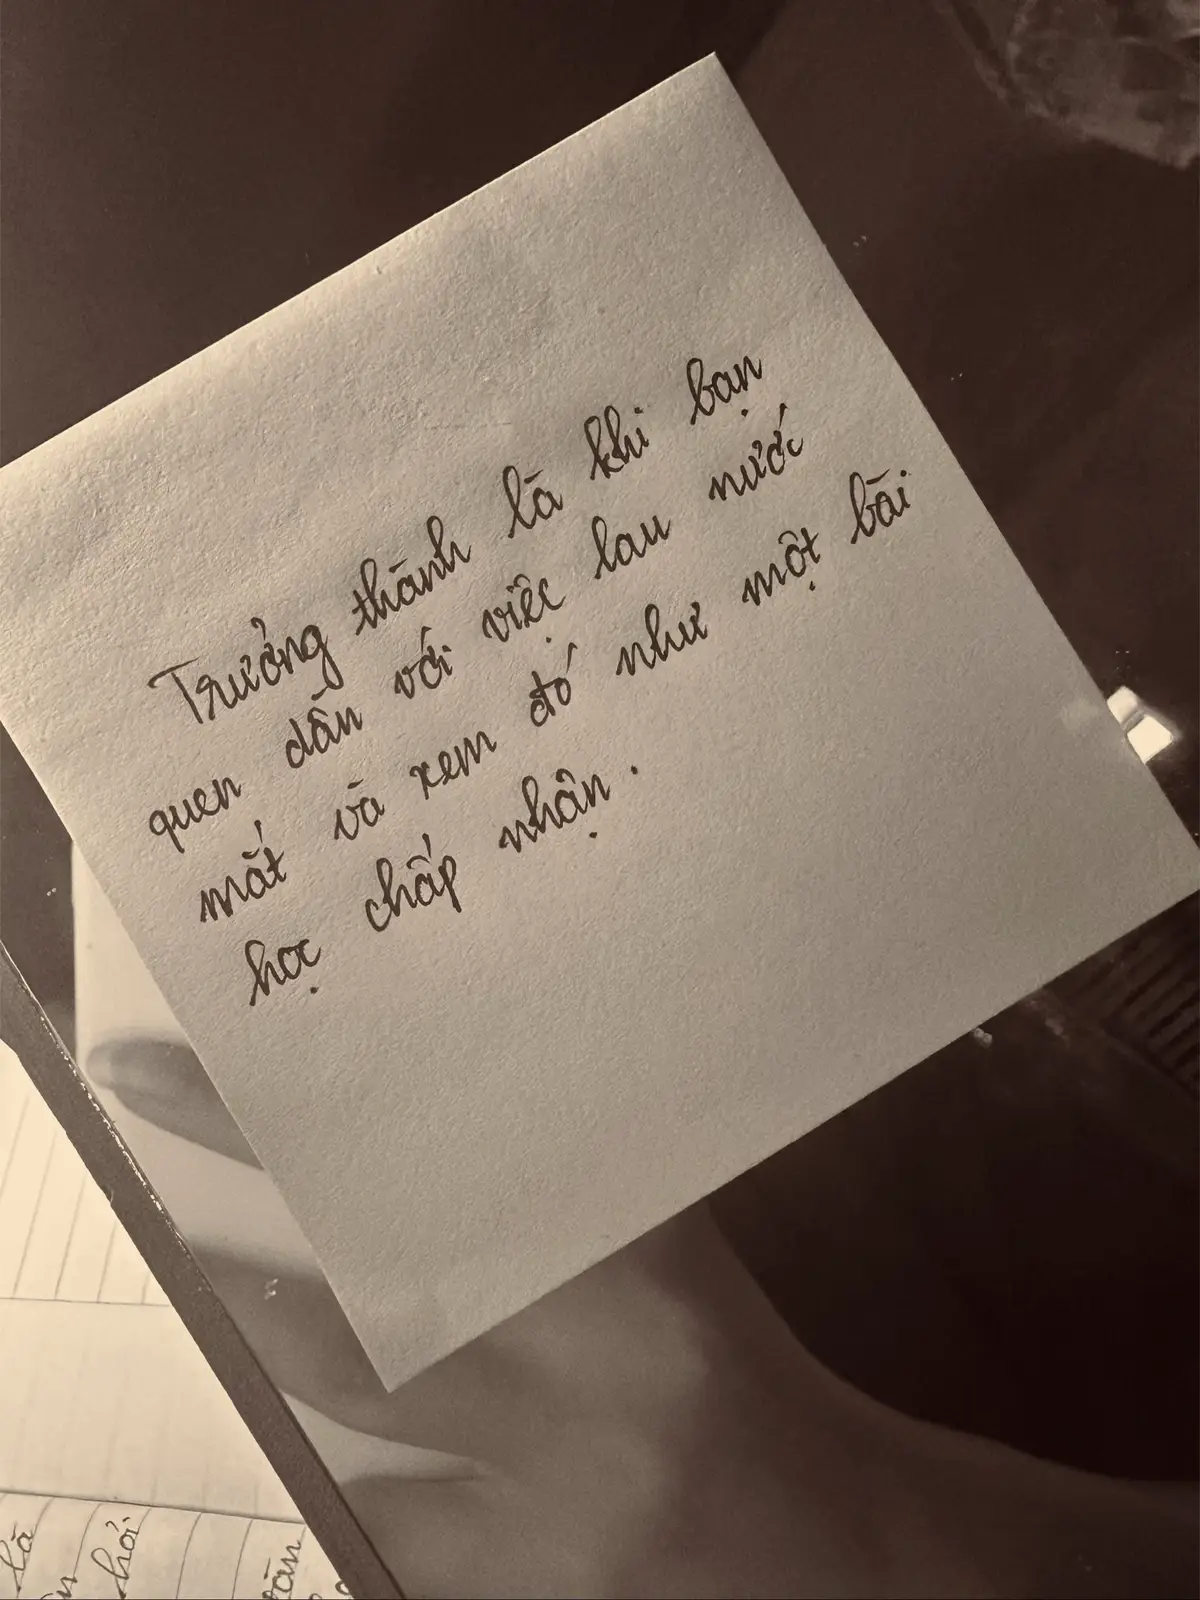 Trưởng thành là khi bạn
quen dần với việc lau nước
mắt và xem đó như một bài
học chấp nhận.
là
hỏi